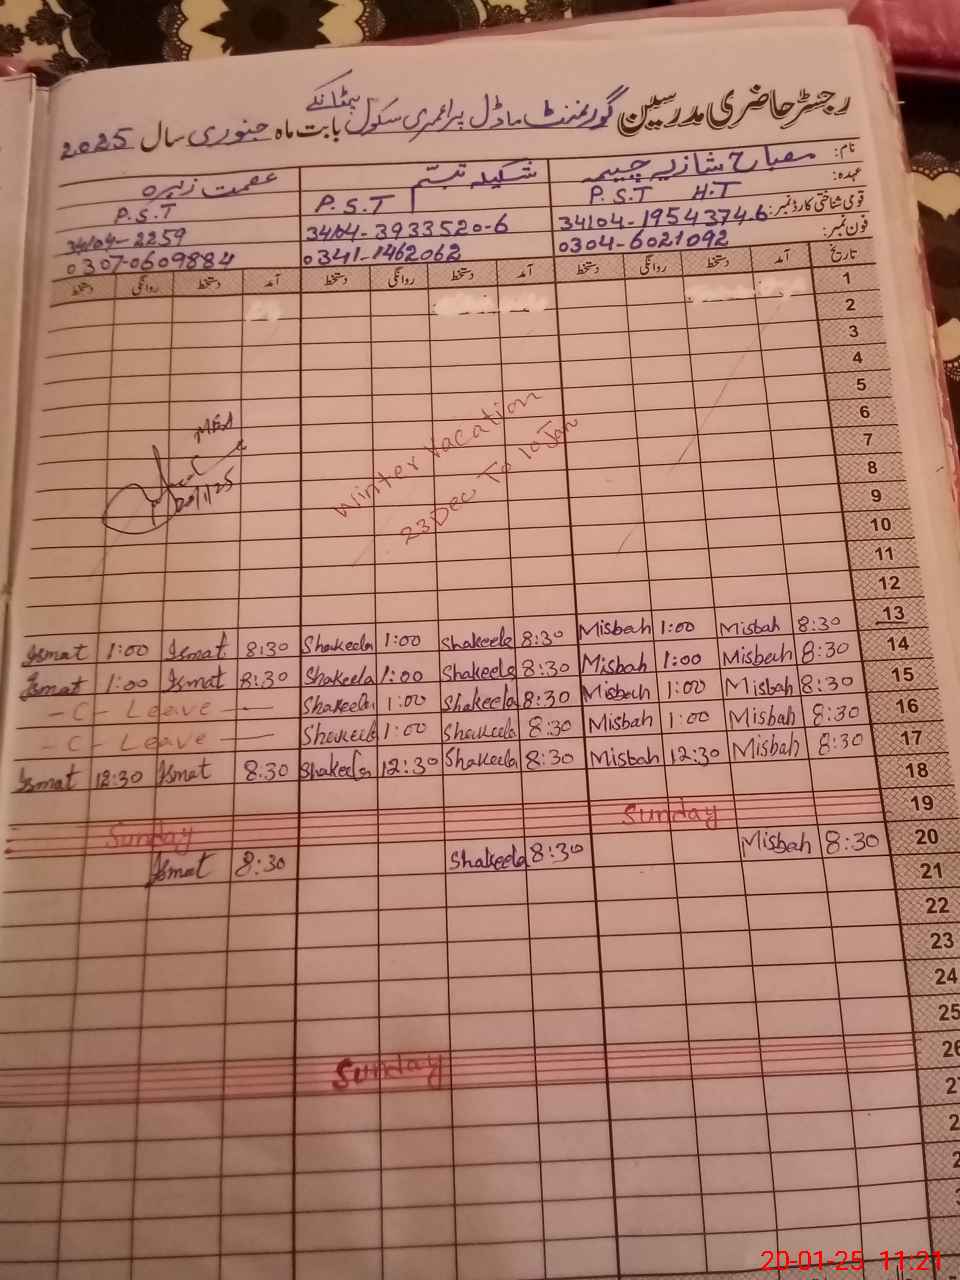 رجسٹر حاضری مدرسین گورنمنٹ ماڈل پرائمری سکول بابت ماہ جنوری سال 2025
نام: مصباح شازیہ چیمہ شکیلہ تبسم عصمت زہرہ
عہدہ: P.S.T H.T P.S.T P.S.T
قومی شناختی کارڈ نمبر: 34104-1954374-6 34104-3933520-6 34104-2259
فون نمبر: 0304-6021092 0341-1462062 0307-0609884
تاریخ آمد دستخط روانگی دستخط آمد دستخط روانگی دستخط آمد دستخط روانگی دستخط
1
2
3
4
5
6
7
8
9
10
11
12
MEA
20/1/25
Winter Vacation
23 Dec To 10 Jan
Ismat 1:00 Ismat 8:30 Shakeela 1:00 Shakeela 8:30 Misbah 1:00 Misbah 8:30 13
Ismat 1:00 Ismat 8:30 Shakeela 1:00 Shakeela 8:30 Misbah 1:00 Misbah 8:30 14
- C - Leave - Shakeela 1:00 Shakeela 8:30 Misbah 1:00 Misbah 8:30 15
- C - Leave - Shakeela 1:00 Shakeela 8:30 Misbah 1:00 Misbah 8:30 16
Ismat 12:30 Ismat 8:30 Shakeela 12:30 Shakeela 8:30 Misbah 12:30 Misbah 8:30 17
18
Sunday Sunday 19
Ismat 8:30 Shakeela 8:30 Misbah 8:30 20
21
22
23
24
25
Sunday 26
20-01-25 11:21